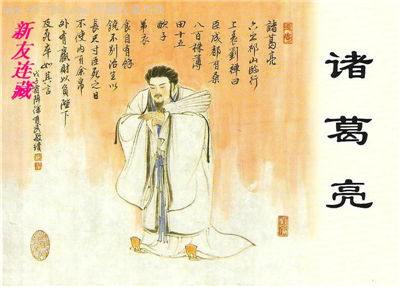 诸葛亮
諸葛亮
六出祁山臨行
上表劉禪曰
臣成都有桑
八百株薄
田十五
頃子
弟衣
食自有餘
饒不別治生以
長尺寸臣死之日
不使內有余帛
外有贏財以負陛下
及卒如其言
新友连藏